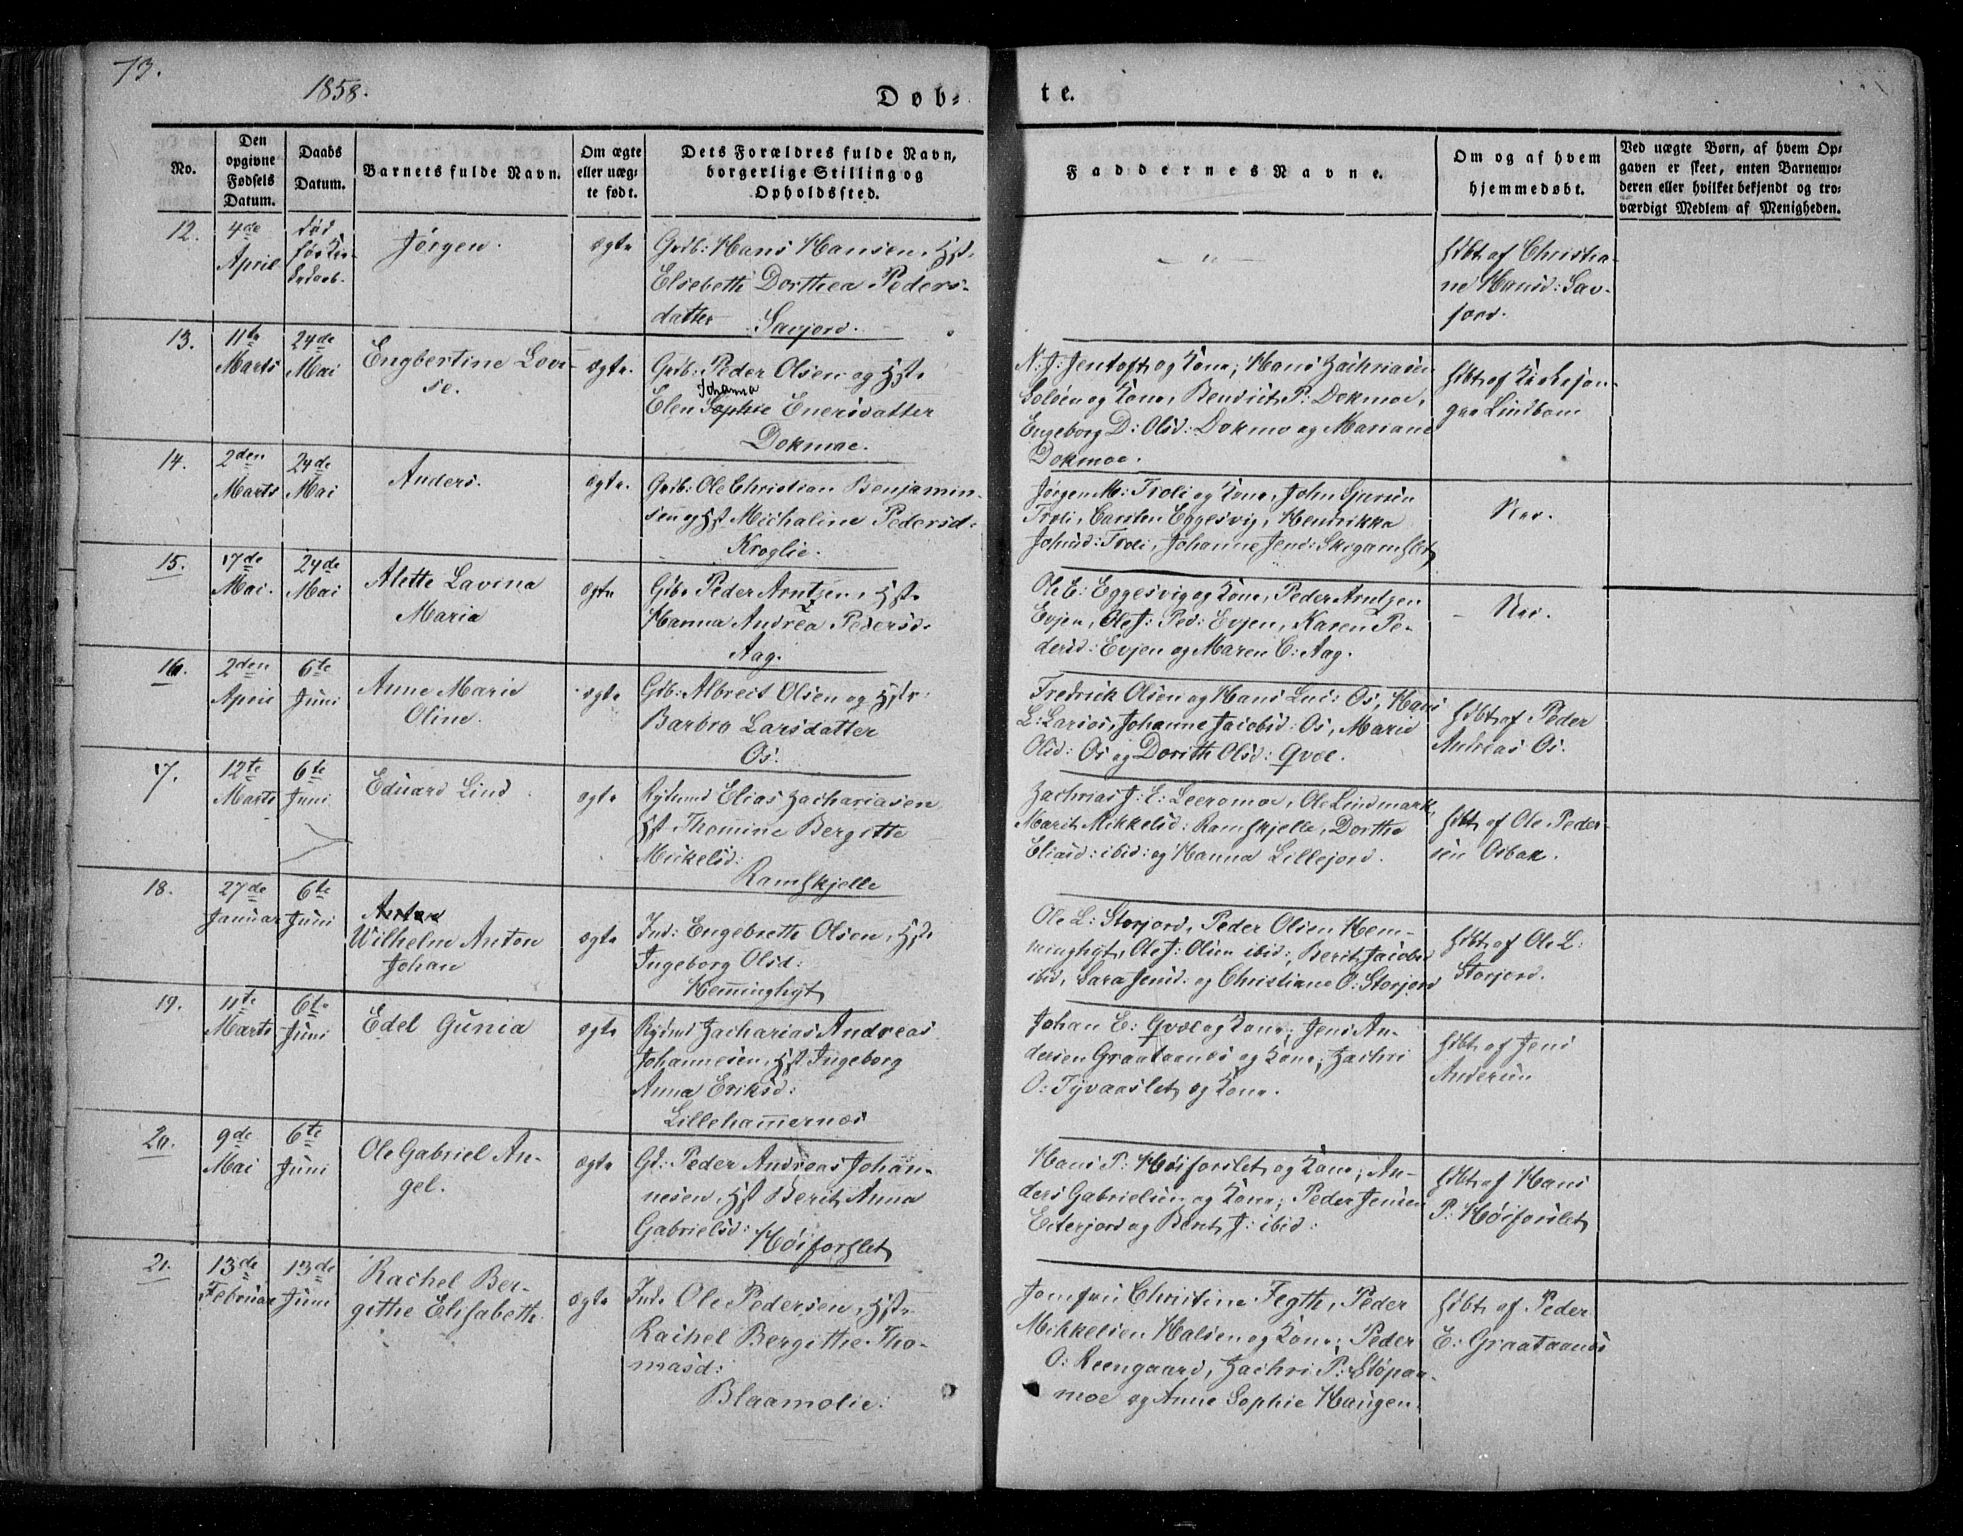 73.
1858.
Døb-
te.
No.
Den opgivne Fødsels Datum.
Daabs Datum.
Barnets fulde Navn.
Om ægte eller uægte født.
Dets Forældres fulde Navn, borgerlige Stilling og Opholdssted.
Faddernes Navne.
Om og af hvem hjemmedøbt.
Ved uægte Børn, af hvem Opgaven er skeet, enten Barnemoderen eller hvilket bekjendt og troværdigt Medlem af Menigheden.
12.
4de
April
død
før
Jørgen.
ægte
Hans Hansen, Hst.
Elsebeth Dorthea Peders-
datter Savjord.
— " —
hdbt af Christia-
ne Hansd: Sav-
jord.
13.
11te
Marts
24de
Mai
Engbertine Lovi-
se.
ægte.
Grdb: Peder Olsen og Hst.
Johanna
Elen Sophie Enersdatter
Dokmoe.
N: J: Jentoft og Kone, Hans Zachriasen
og Kone, Bendict P: Dokmoe,
Engeborg D: Olsd: Dokmo og Mariane
Dokmoe.
hdbt af Kirkesjan-
ger Lindbom
14.
2den
Marts
24de
Mai
Anders.
ægte.
Grdb: Ole Christian Benjamin-
sen og Hst Michaline Pedersd:
Kroglie.
Jørgen M: Troli og Kone, John
Troli, Carsten Eggesvig, Henrikka
Johnsd: Troli, Johanne Jensd:
Nei.
15.
17de
Mai.
24de
Mai
Alette Lavina
Maria
ægte
Grdb: Peder Arntzen, Hst.
Hanna Andrea Pedersd.
Aag.
Ole E: Eggesvig og Kone, Peder Arntzen
Evjen, Ole J: Ped: Evjen, Karen Pe-
dersd: Evjen og Maren C: Aag.
- Nei.
16.
2den
April
6te
Juni
Anne Marie
Oline.
ægte
Grdb: Albreit Olsen og Hst:
Barbro Larsdatter
Os.
Fredrick Olsen og Hans Os, Hans
L: Larsos, Johanne Jacobsd: Os, Marie
Olsd: Os og Dorith Olsd: Qvæl.
hdbt af Peder
Andreas Os.
17.
12te
Marts
6te
Juni
Eduard Lind
ægte
Rydsmd Elias Zachariasen
Hst Thomine Bergitte
Mickelsd:
Ramskjelle
Zachrias J: E: Leeromoe, Ole Lindmark,
Marit Mikkelsd: Ramskjelle, Dorthe
Eliasd: ibid: og Hanna Lillejord.
hdbt af Ole Peder-
sen Osbak.
18.
27de
Januar
6te
Juni
Anton
Wilhelm Anton
Johan
ægte
Ind: Engebrett Olsen, Hst.
Ingeborg Olsd:
Hemminghyt
Ole L: Storjord, Peder Olsen Hem-
minghyt, Ole J: Olsen ibid:, Berit Jacobsd
ibid, Sara Jensd: og Christiane O: Storjord
hdbt af Ole L:
Storjord.
19.
11te
Marts
6te
Juni
Edel Gunia
ægte
Rydsmd Zacharias Andreas
Johannesen, Hst Ingeborg
Anna Eriksd:
Lillehammernæs
Johan E: Qvæl og Kone, Jens An-
dersen Graataanæs og Kone, Zachri
O: Tvvaaslet og Kone.
hdbt af Jens
Andersen
20.
9de
Mai
6te
Juni
Ole Gabriel An-
gel.
ægte
Gd: Peder Andreas Johan-
nesen, Hst Berit Anna
Gabrielsd: Høiforslet
Hans P: Høiforslet og Kone, An-
ders Gabrielsen og Kone, Peder Jensen
Eiterjord og Berit J: ibid:
hdbt af Hans
P: Høiforslet
21.
13de
Februar
13de
Juni
Rachel Ber-
githe Elisabeth
ægte
Ind. Ole Pedersen, Hst.
Rachel Bergitthe Tho-
masd:
Blaamolie.
Jomfru Christine Fegth, Peder
Mikkelsen Halsen og Kone, Peder
O: Reengaard, Zachri P: Støpaa-
moe og Anne Sophie Haugen.
hdbt af Peder
E: Graataanæs